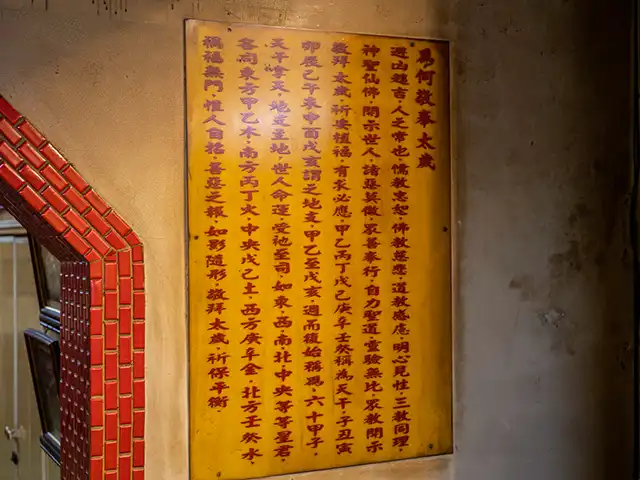 為何敬奉太歲
避凶趨吉，人之常也，儒教忠恕，佛教慈悲，道教感應，明心見性，三教同理，
神聖仙佛，開示世人，諸惡莫做，眾善奉行，自力聖道靈驗無比，眾教開示
敬拜太歲，祈安植福，有求必應，甲乙丙丁戊己庚辛壬癸稱為天干，子丑寅
卯辰巳午未申酉戌亥謂之地支，甲乙至戊亥，週而復始稱為，六十甲子，
天干拿天，地支至地，世人命運受祂至司，如東，西，南北中央等等星君，
各司東方甲乙木，南方丙丁火，中央戊己土，西方庚辛金，北方壬癸水，
禍福無門，惟人自招，善惡之報，如影隨形，敬拜太歲，祈保平衡